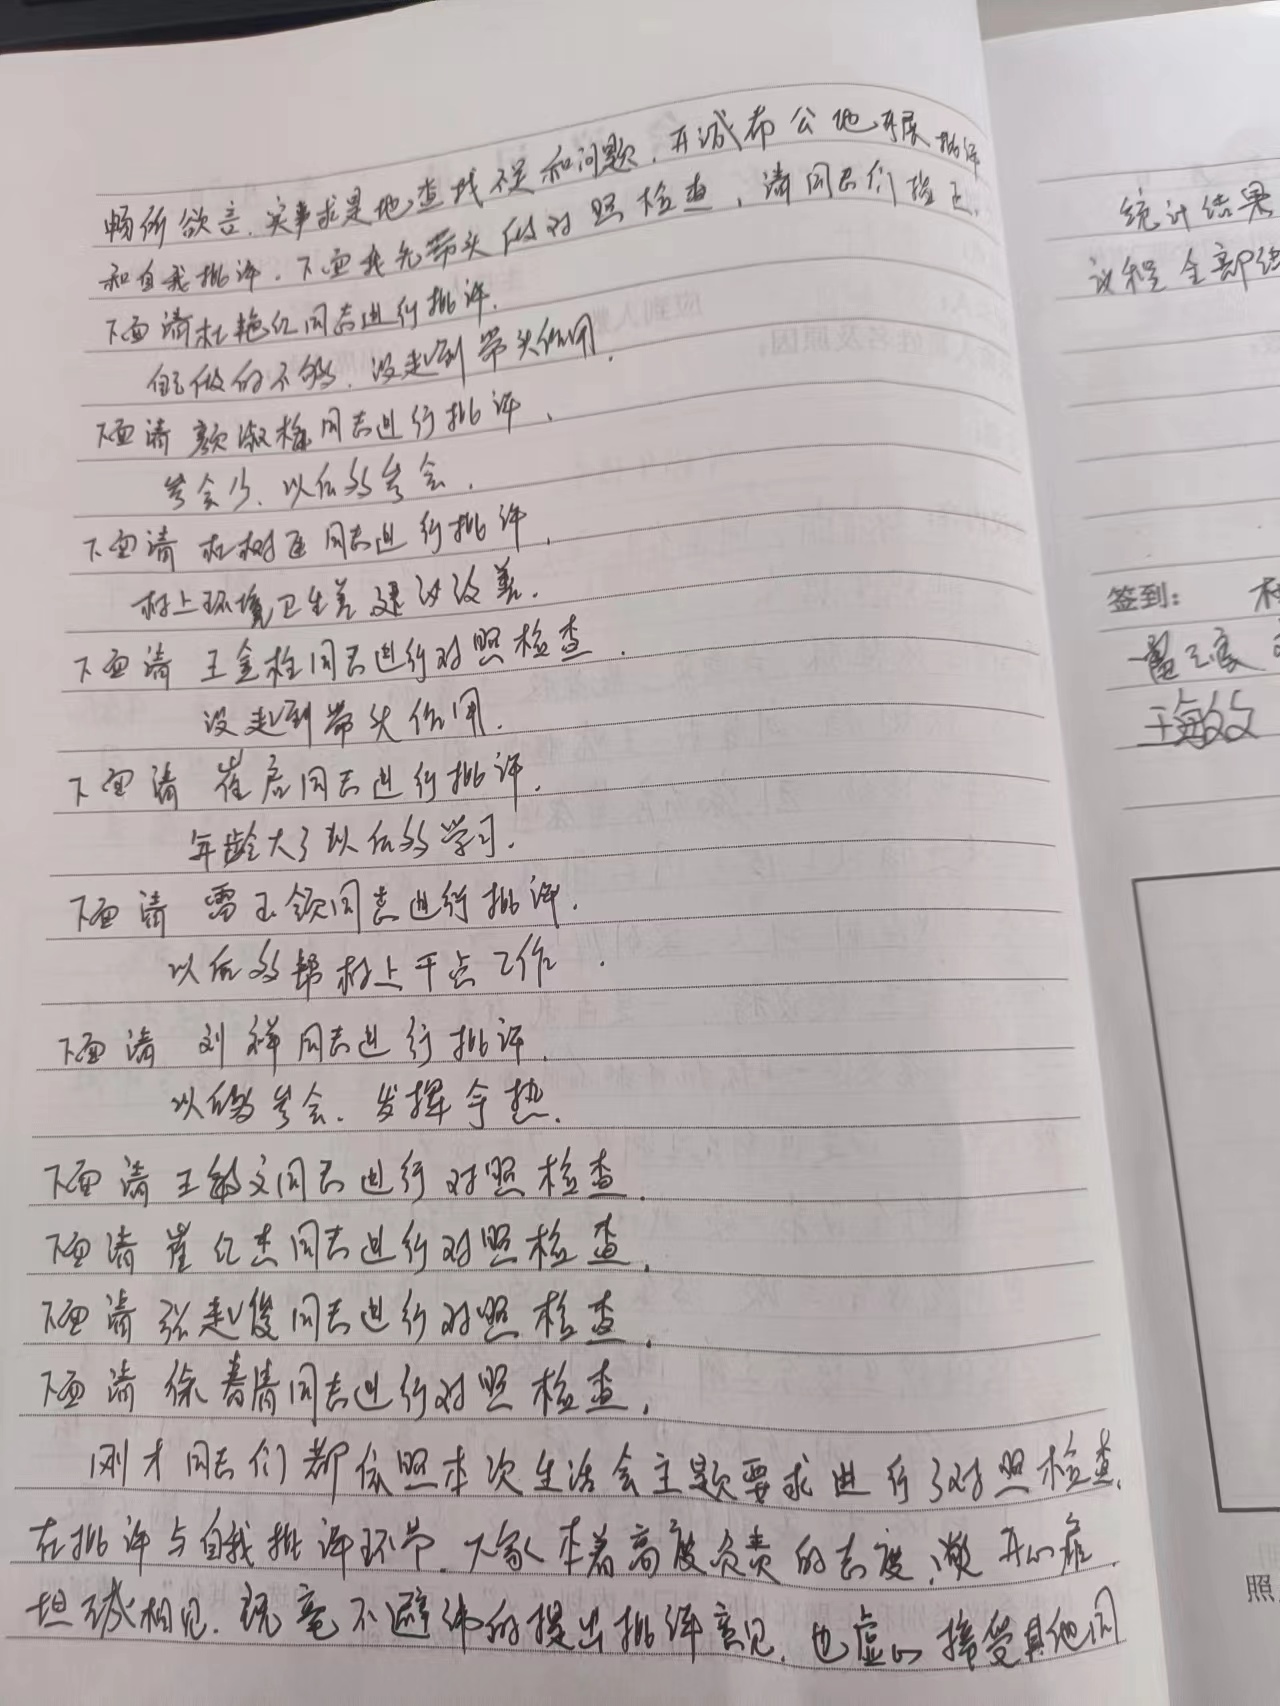 畅所欲言,实事求是地查找不足和问题,开诚布公地开展批评
和自我批评。下面我先带头做对照检查,请同志们指正。
下面请杜艳红同志进行批评。
自己做的不够,没起到带头作用。
下面请颜淑梅同志进行批评。
参会少,以后多参会。
下面请杜树臣同志进行批评。
村上环境卫生差建议改善。
下面请王金柱同志进行对照检查。
没起到带头作用。
下面请崔启同志进行批评。
年龄大了以后多学习。
下面请雷玉领同志进行批评。
以后多帮村上干点工作。
下面请刘祥同志进行批评。
以后多参会,发挥余热。
下面请王敏文同志进行对照检查。
下面请崔红杰同志进行对照检查。
下面请张起俊同志进行对照检查。
下面请徐春清同志进行对照检查。
刚才同志们都依照本次生活会主题要求进行了对照检查,
在批评与自我批评环节,大家本着高度负责的态度,敞开心扉,
坦诚相见,既毫不避讳的提出批评意见,也虚心接受其他同
统计结果
议程全部
签到:
王敏文
照